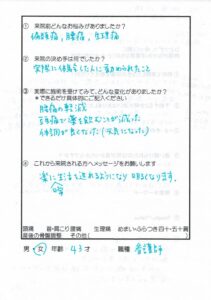 ① 来院前どんなお悩みがありましたか?
偏頭痛、腰痛、生理痛
② 来院の決め手は何でしたか?
実際に体験した人に言われたこと
③ 実際に施術を受けてみて、どんな変化がありましたか?
*できるだけ具体的にご記入ください
腰痛が軽減
頭痛で薬を飲むことが減った
体調が良くなった(元気になった)
④ これから来院される方へメッセージをお願いします
楽に生活も送れるようになり 明るくなります。
頭痛 首・肩こり 腰痛 生理痛 めまい・ふらつき 四十・五十肩
産後の骨盤調整 その他( )
男・女 年齢 43才 職種 看護師